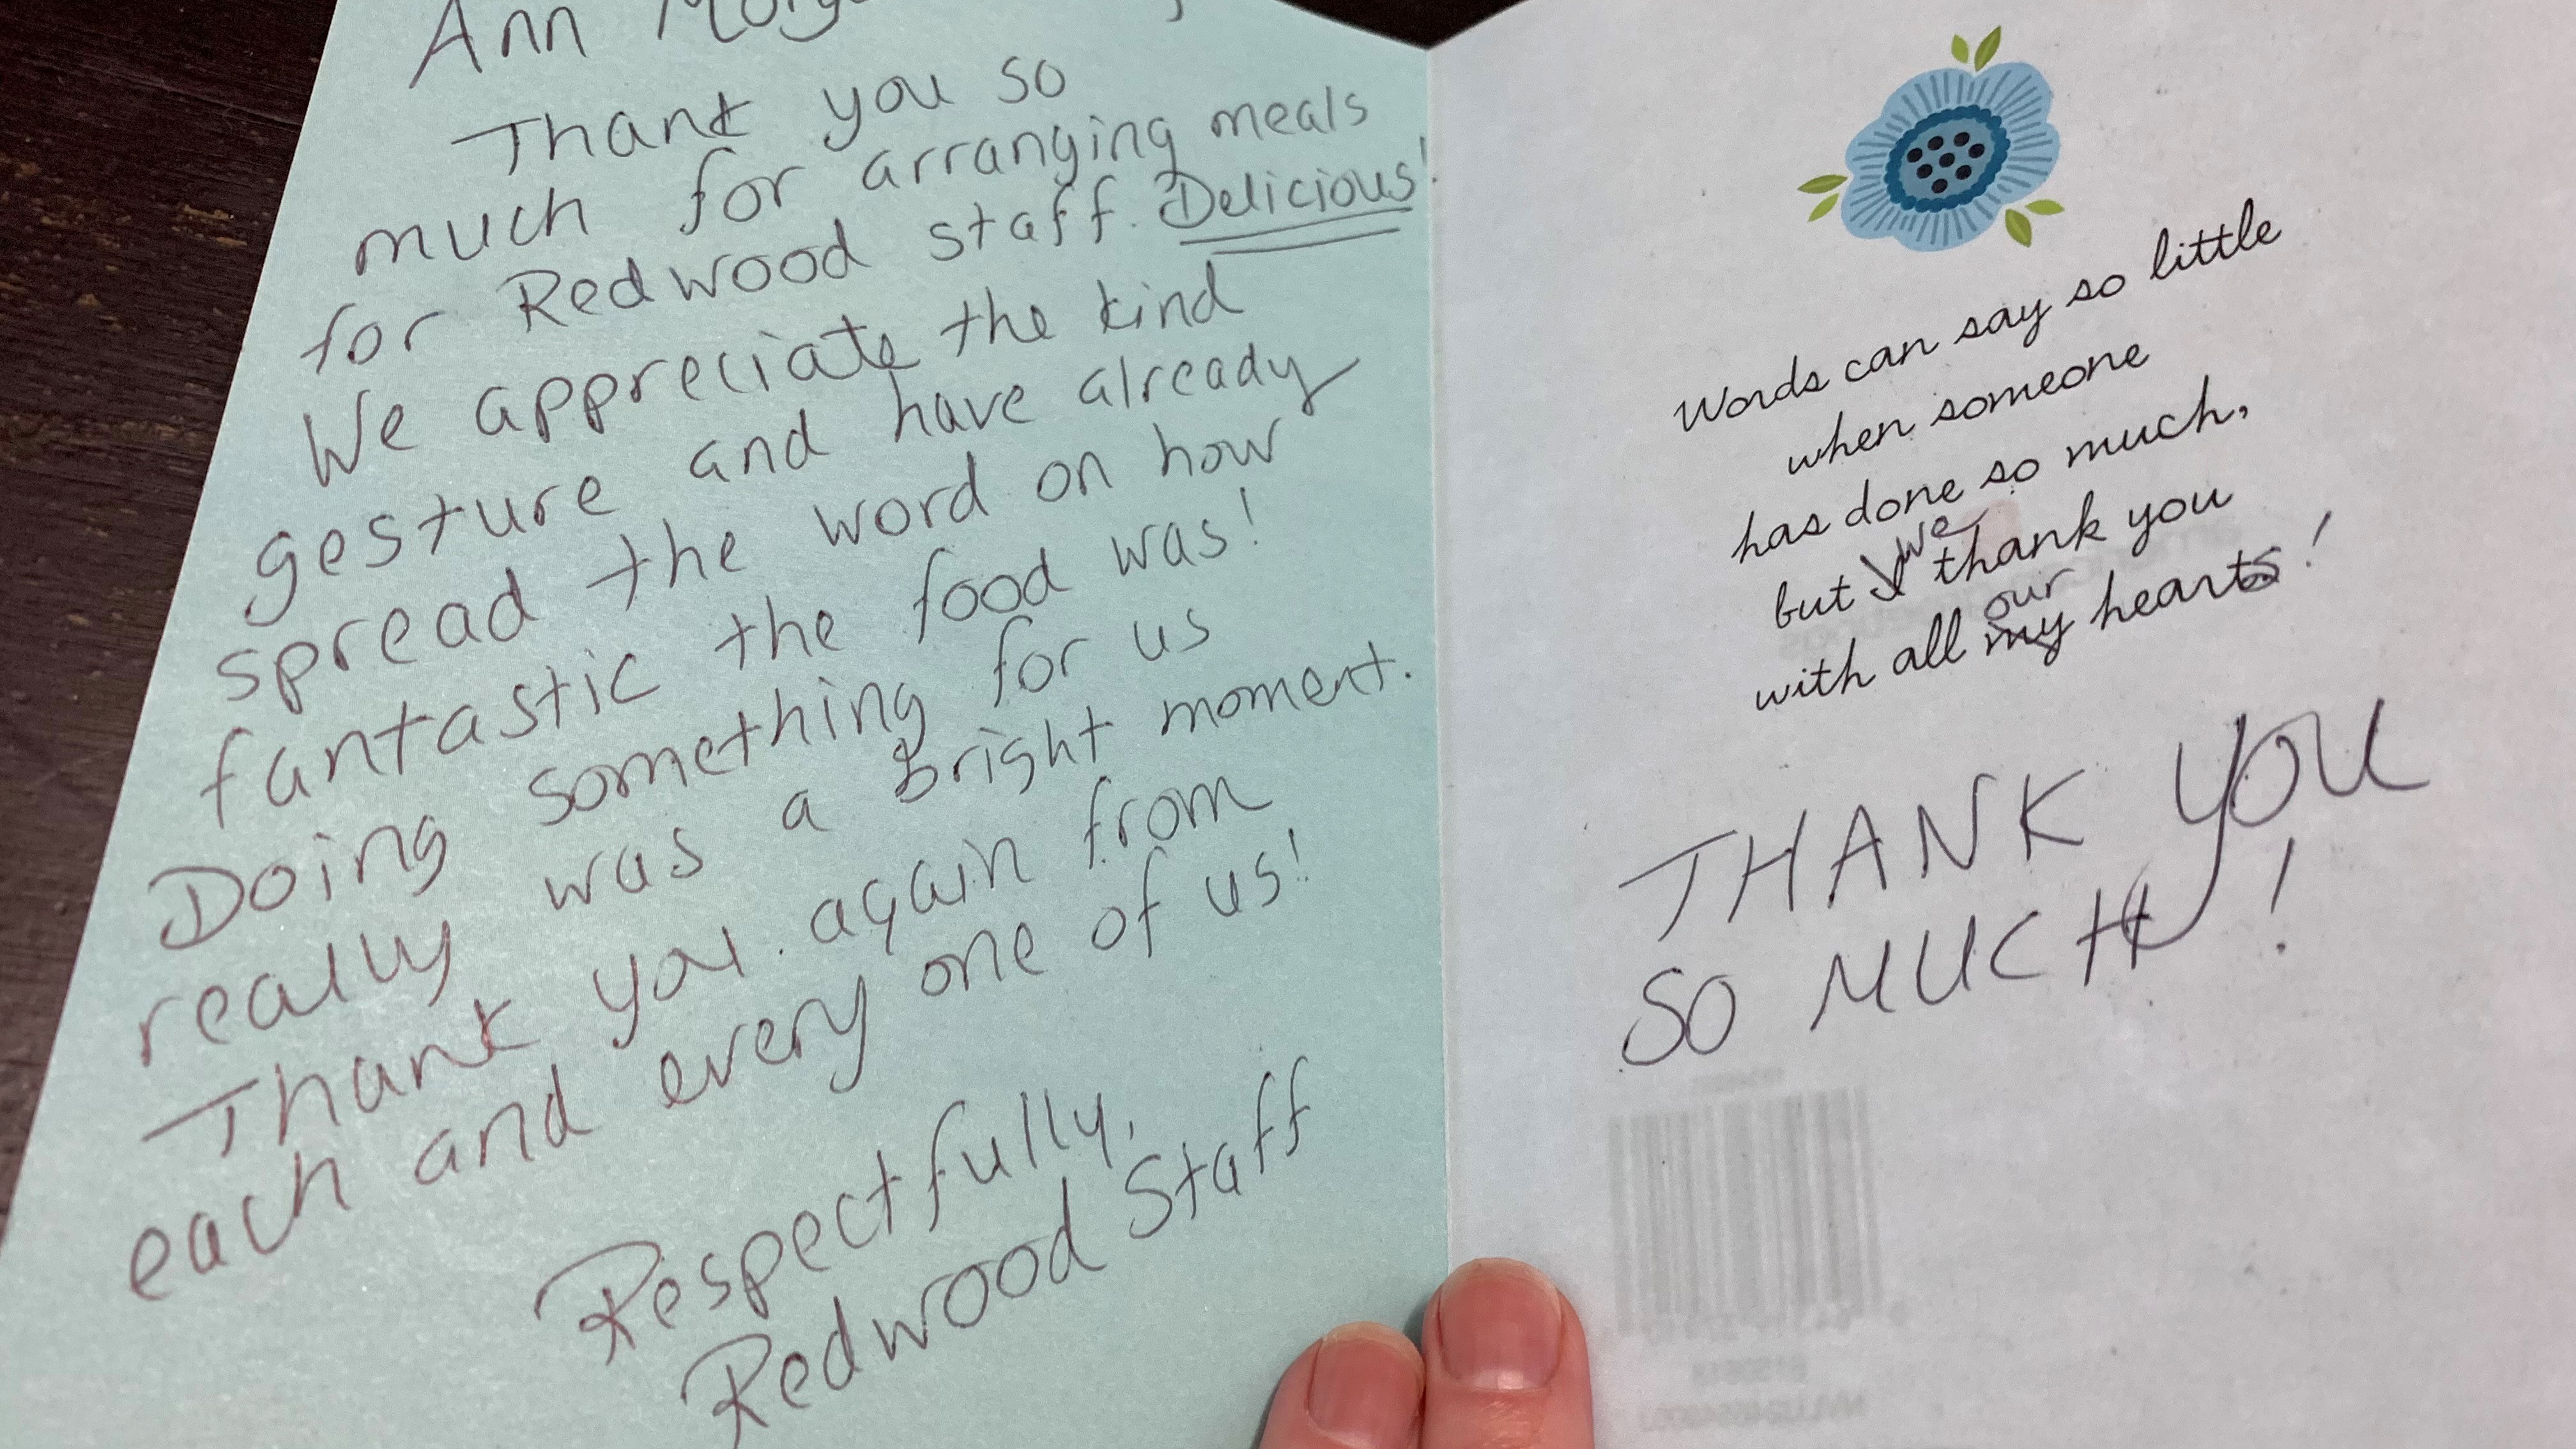 Ann
Thank you so
much for arranging meals
for Redwood staff. Delicious!
We appreciate the kind
gesture and have already
spread the word on how
fantastic the food was!
Doing something for us
really was a bright moment.
Thank you again from
each and every one of us!
Respectfully,
Redwood Staff
Words can say so little
when someone
has done so much,
but I we thank you
with all my our hearts!
THANK YOU
SO MUCH!